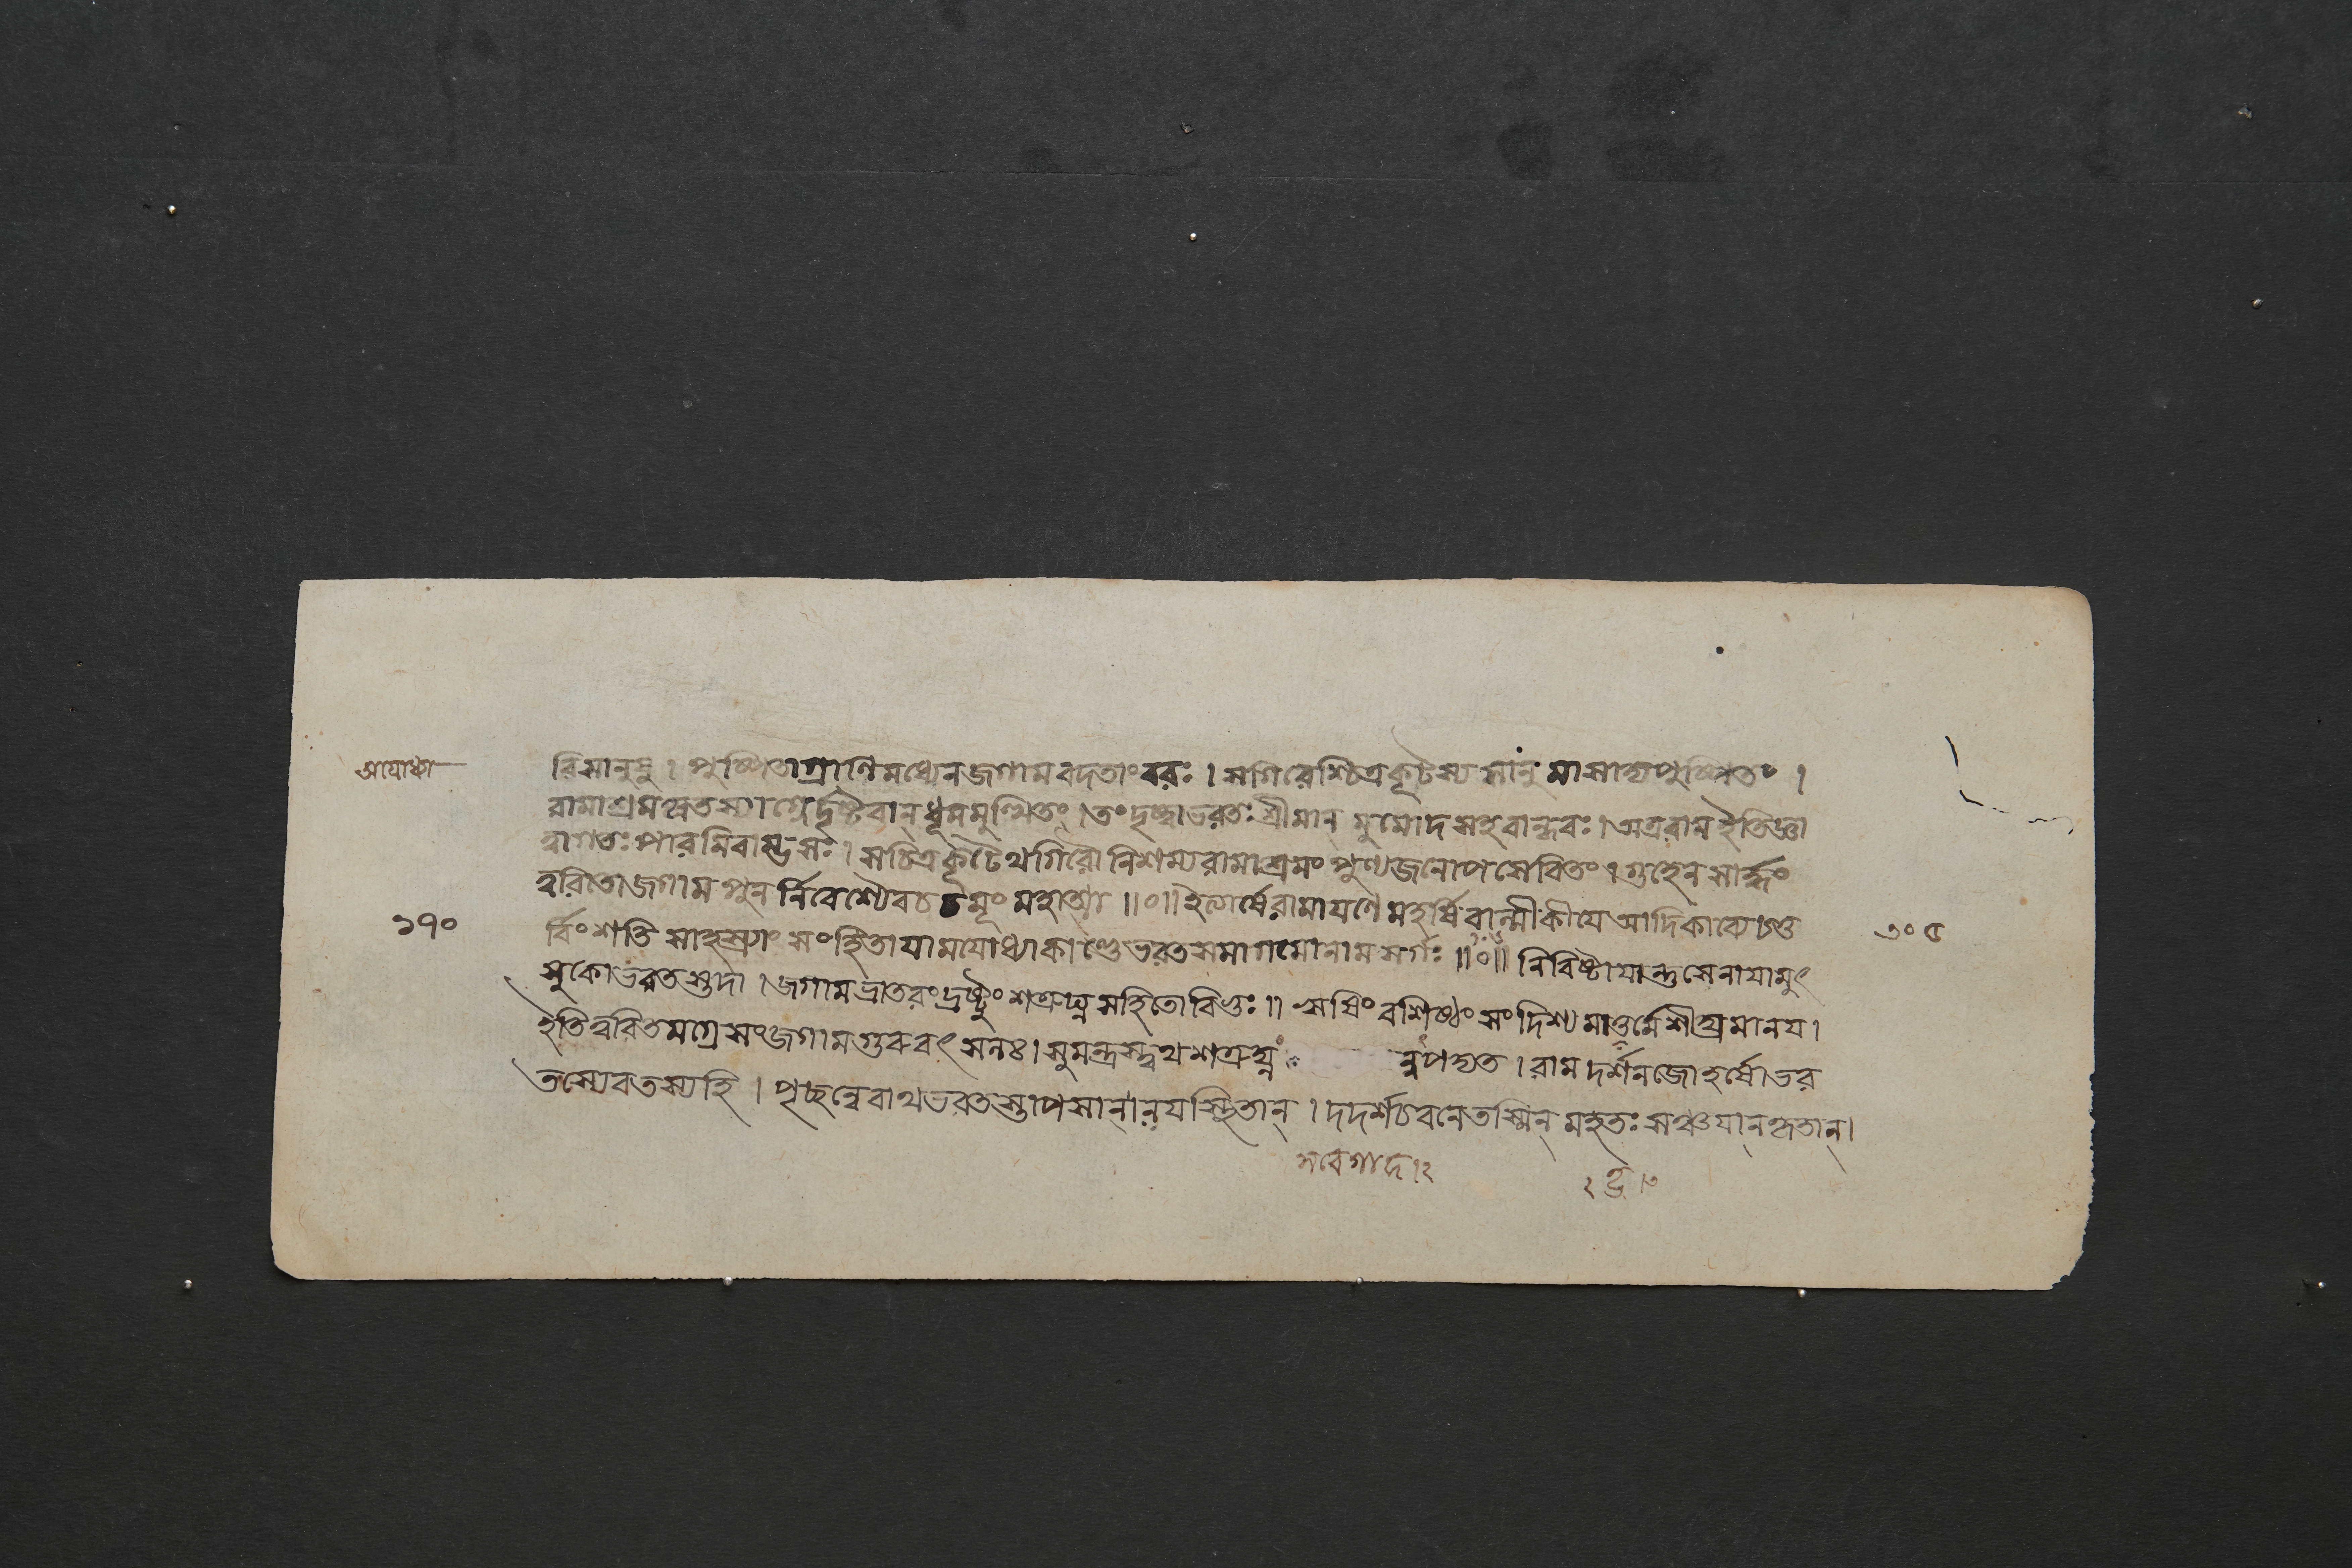 অযোধ্যা
রিসানুদ্রু । পুষ্পিতাগ্রাণি মধ্যেন জগাম বদতাং বরঃ । স গিরেশ্চিত্রকূটস্য সানুমাসাদ্য পুষ্পিতং ।
রামাশ্রমগতস্যাগ্নের্দৃষ্টবান্ ধূমমুত্থিতং । তং দৃষ্ট্বা ভরতঃ শ্রীমান্ মুমোদ সহবান্ধবঃ । অত্র রাম ইতি জ্ঞা
ত্বা গতঃ পারমিবাম্ভসঃ । স চিত্রকূটেথ গিরৌ নিশম্য রামাশ্রমং পুণ্যজনোপসেবিতং । গুহেন সার্দ্ধং
ত্বরিতো জগাম পুনর্নিবেশ্যৈব চ চমূং মহাত্মা ॥০॥ ইত্যার্ষে রামায়ণে মহর্ষিবাল্মীকীয়ে আদিকাব্যে চতু
১৭০
র্বিংশতি সাহস্র্যাং সংহিতায়ামযোধ্যাকাণ্ডে ভরতসমাগমো নাম সর্গঃ ॥০॥ নিবিষ্টায়ান্তু সেনায়ামুৎ
৩০৫
সুকো ভরতস্তদা । জগাম ভ্রাতরং দ্রষ্টুং শত্রুঘ্নসহিতো বিভুঃ ॥ ঋষিং বশিষ্ঠং সংদিশ্য মাতৄর্মে শীঘ্রমানয় ।
ইতি ত্বরিতমগ্রে সং জগাম গুরুবৎসলঃ । সুমন্ত্রস্ত্বথ শত্রুঘ্ন ন্বপদ্যত । রামদর্শনজো হর্ষো ভর
তস্যেব তস্য হি । পৃচ্ছন্নেবাথ ভরতস্তাপসানালয়স্থিতান্ । দদর্শ চ বনে তস্মিন্ মহতঃ সঞ্চয়ান্ কৃতান্ ।